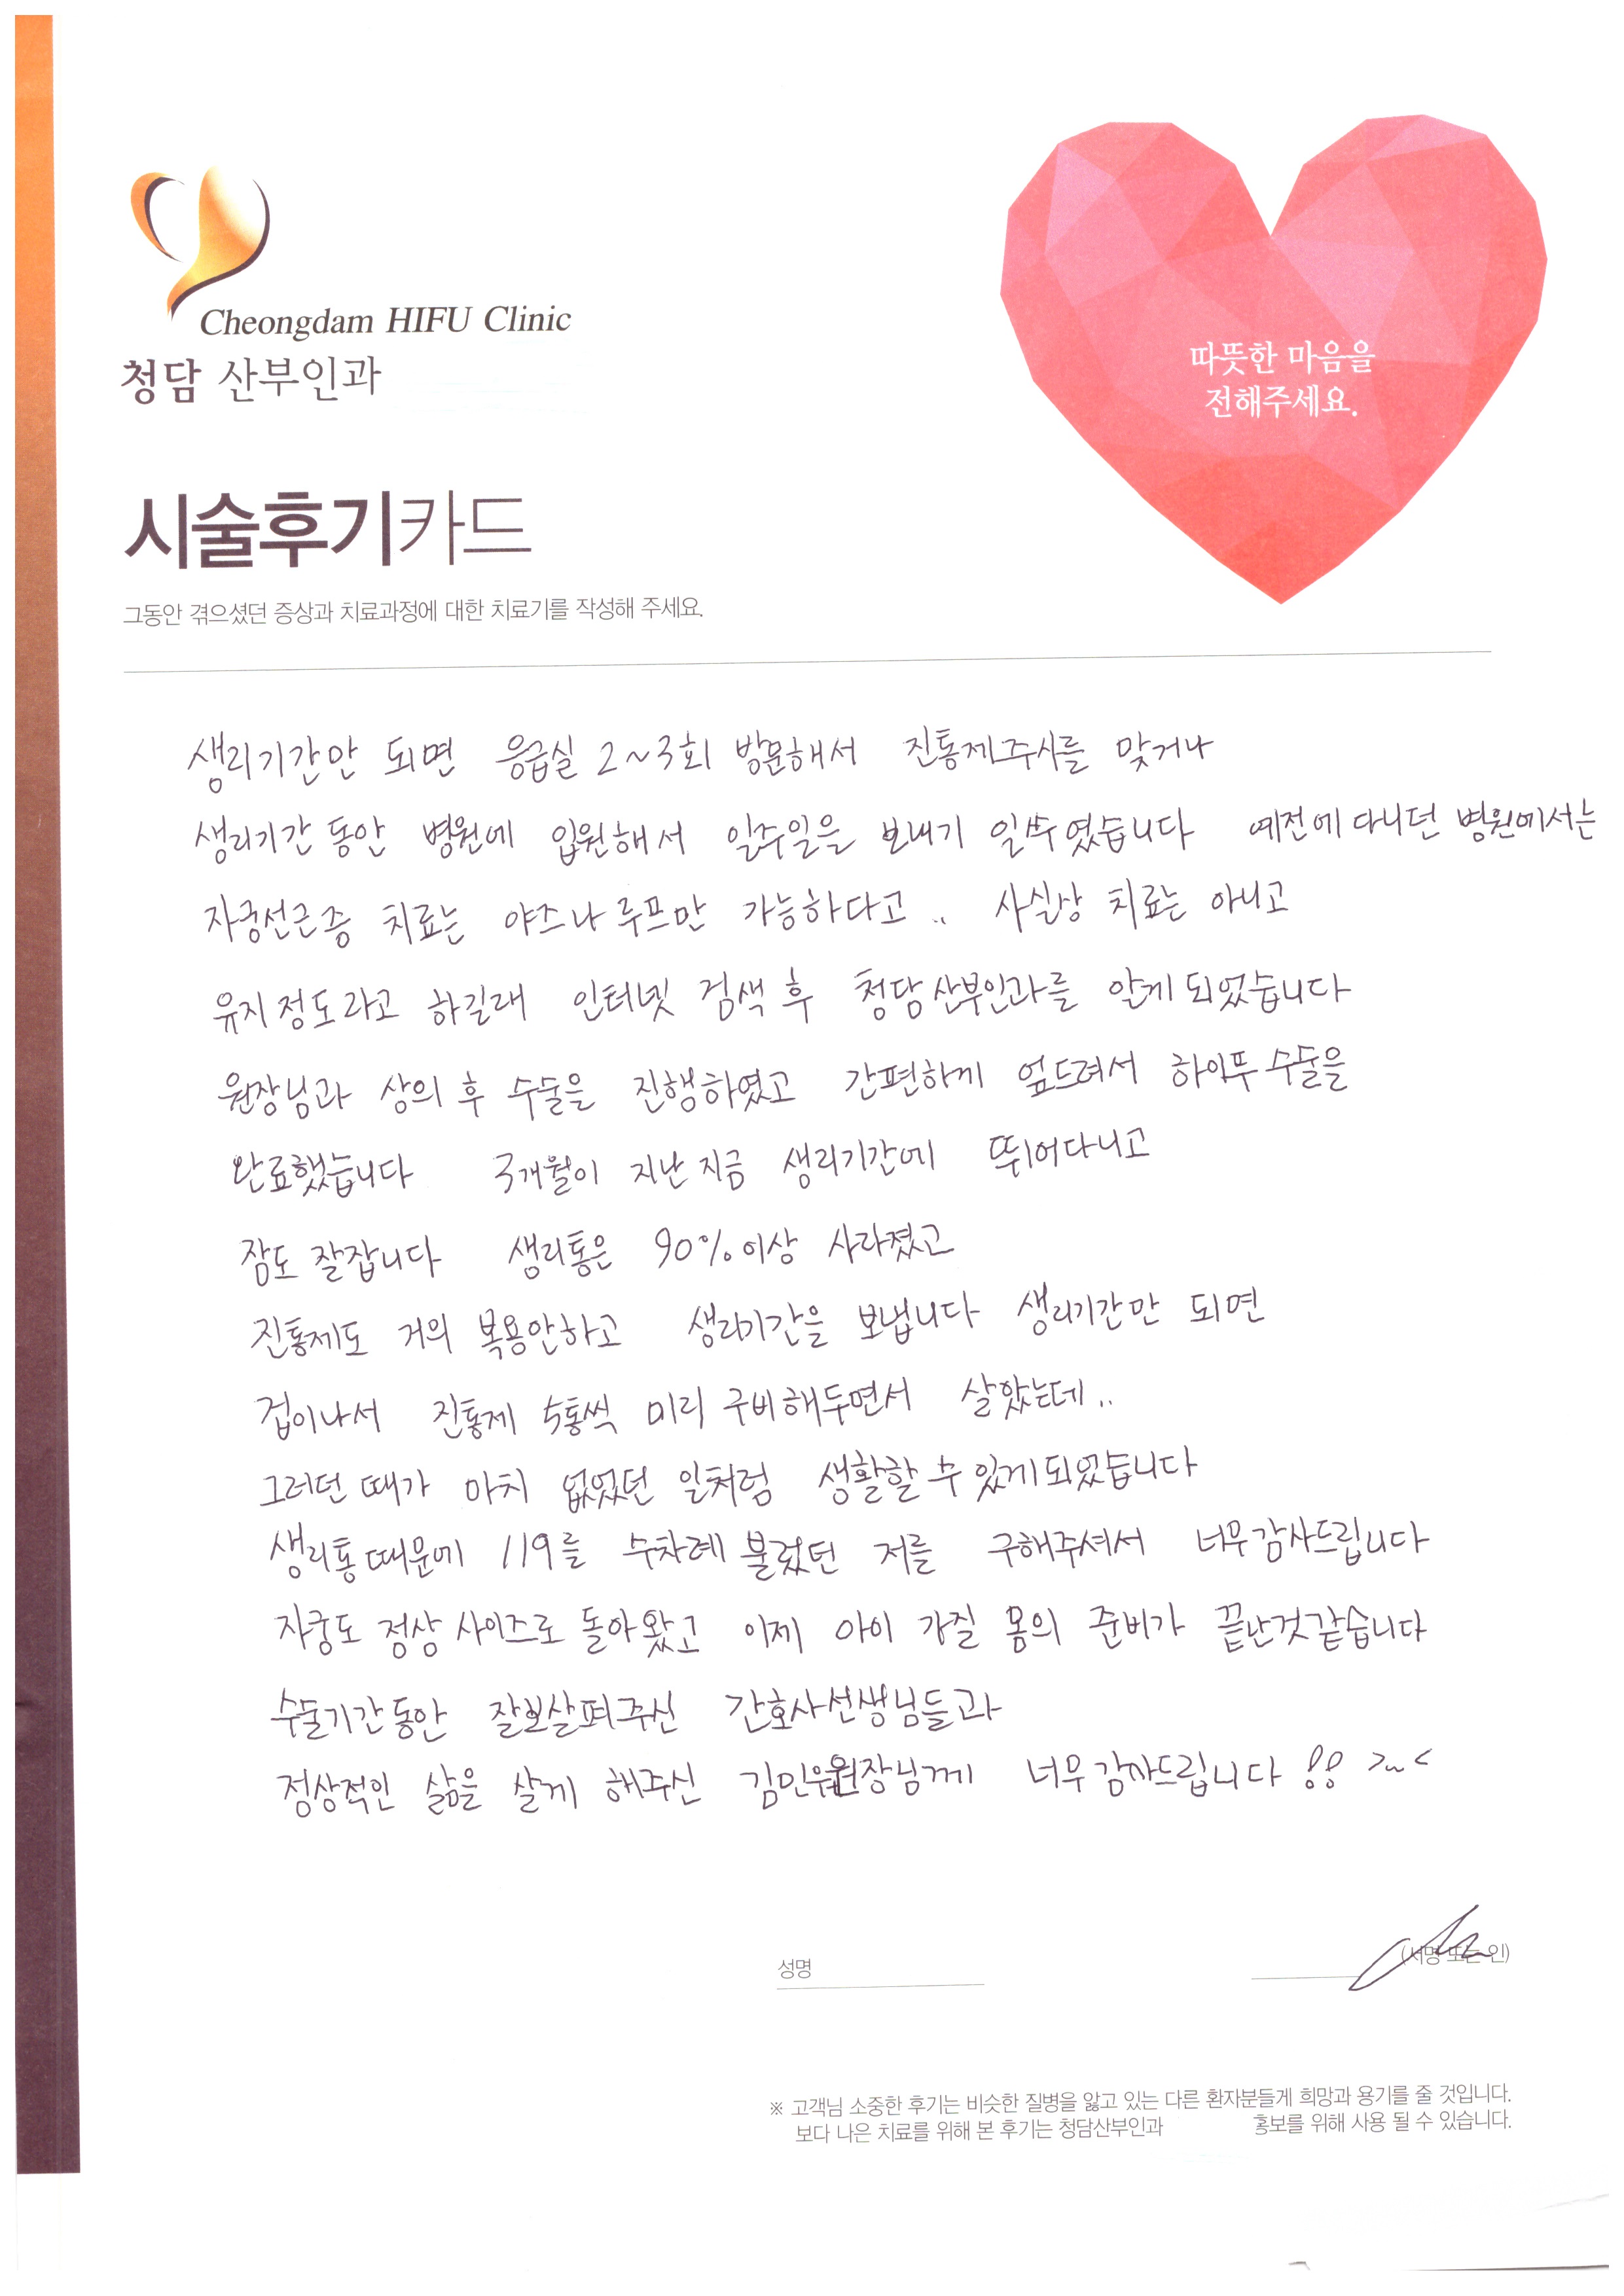 Cheongdam HIFU Clinic
청담 산부인과
따뜻한 마음을
전해주세요.
시술후기카드
그동안 겪으셨던 증상과 치료과정에 대한 치료기를 작성해 주세요.
생리기간만 되면 응급실 2~3회 방문해서 진통제주사를 맞거나
생리기간 동안 병원에 입원해서 일주일을 보내기 일쑤였습니다 예전에 다니던 병원에서는
자궁선근증 치료는 야즈나 루프만 가능하다고.. 사실상 치료는 아니고
유지 정도라고 하길래 인터넷 검색 후 청담산부인과를 알게 되었습니다
원장님과 상의 후 수술을 진행하였고 간편하게 엎드려서 하이푸 수술을
완료했습니다 3개월이 지난 지금 생리기간에 뛰어다니고
잠도 잘잡니다 생리통은 90%이상 사라졌고
진통제도 거의 복용안하고 생리기간을 보냅니다 생리기간만 되면
겁이나서 진통제 5통씩 미리 구비해두면서 살았는데..
그러던 때가 마치 없었던 일처럼 생활할 수 있게되었습니다
생리통때문에 119를 수차례 불렀던 저를 구해주셔서 너무감사드립니다
자궁도 정상 사이즈로 돌아왔고 이제 아이 가질 몸의 준비가 끝난것같습니다
수술기간동안 잘보살펴주신 간호사선생님들과
정상적인 삶을 살게 해주신 김민우원장님께 너무감사드립니다 !! >~<
성명
(서명 또는 인)
※ 고객님 소중한 후기는 비슷한 질병을 앓고 있는 다른 환자분들게 희망과 용기를 줄 것입니다.
보다 나은 치료를 위해 본 후기는 청담산부인과 홍보를 위해 사용 될 수 있습니다.